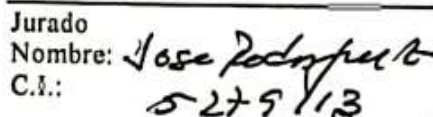 Jurado
Nombre: Jose Rodriguez
C.I.: 5279113